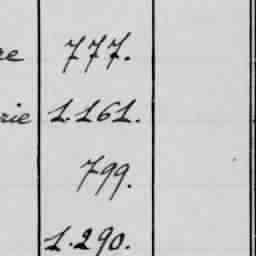 re 777.
rie 1.161.
799.
1.290.